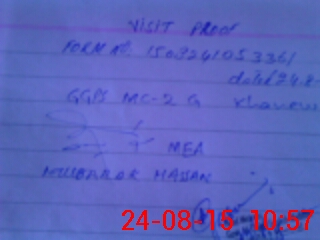 VISIT PROOF
FORM NO. 1503241053361
dated 24.8-
GGPS MC-2 G
MEA
MUBARAK HASSAN
24-08-15 10:57